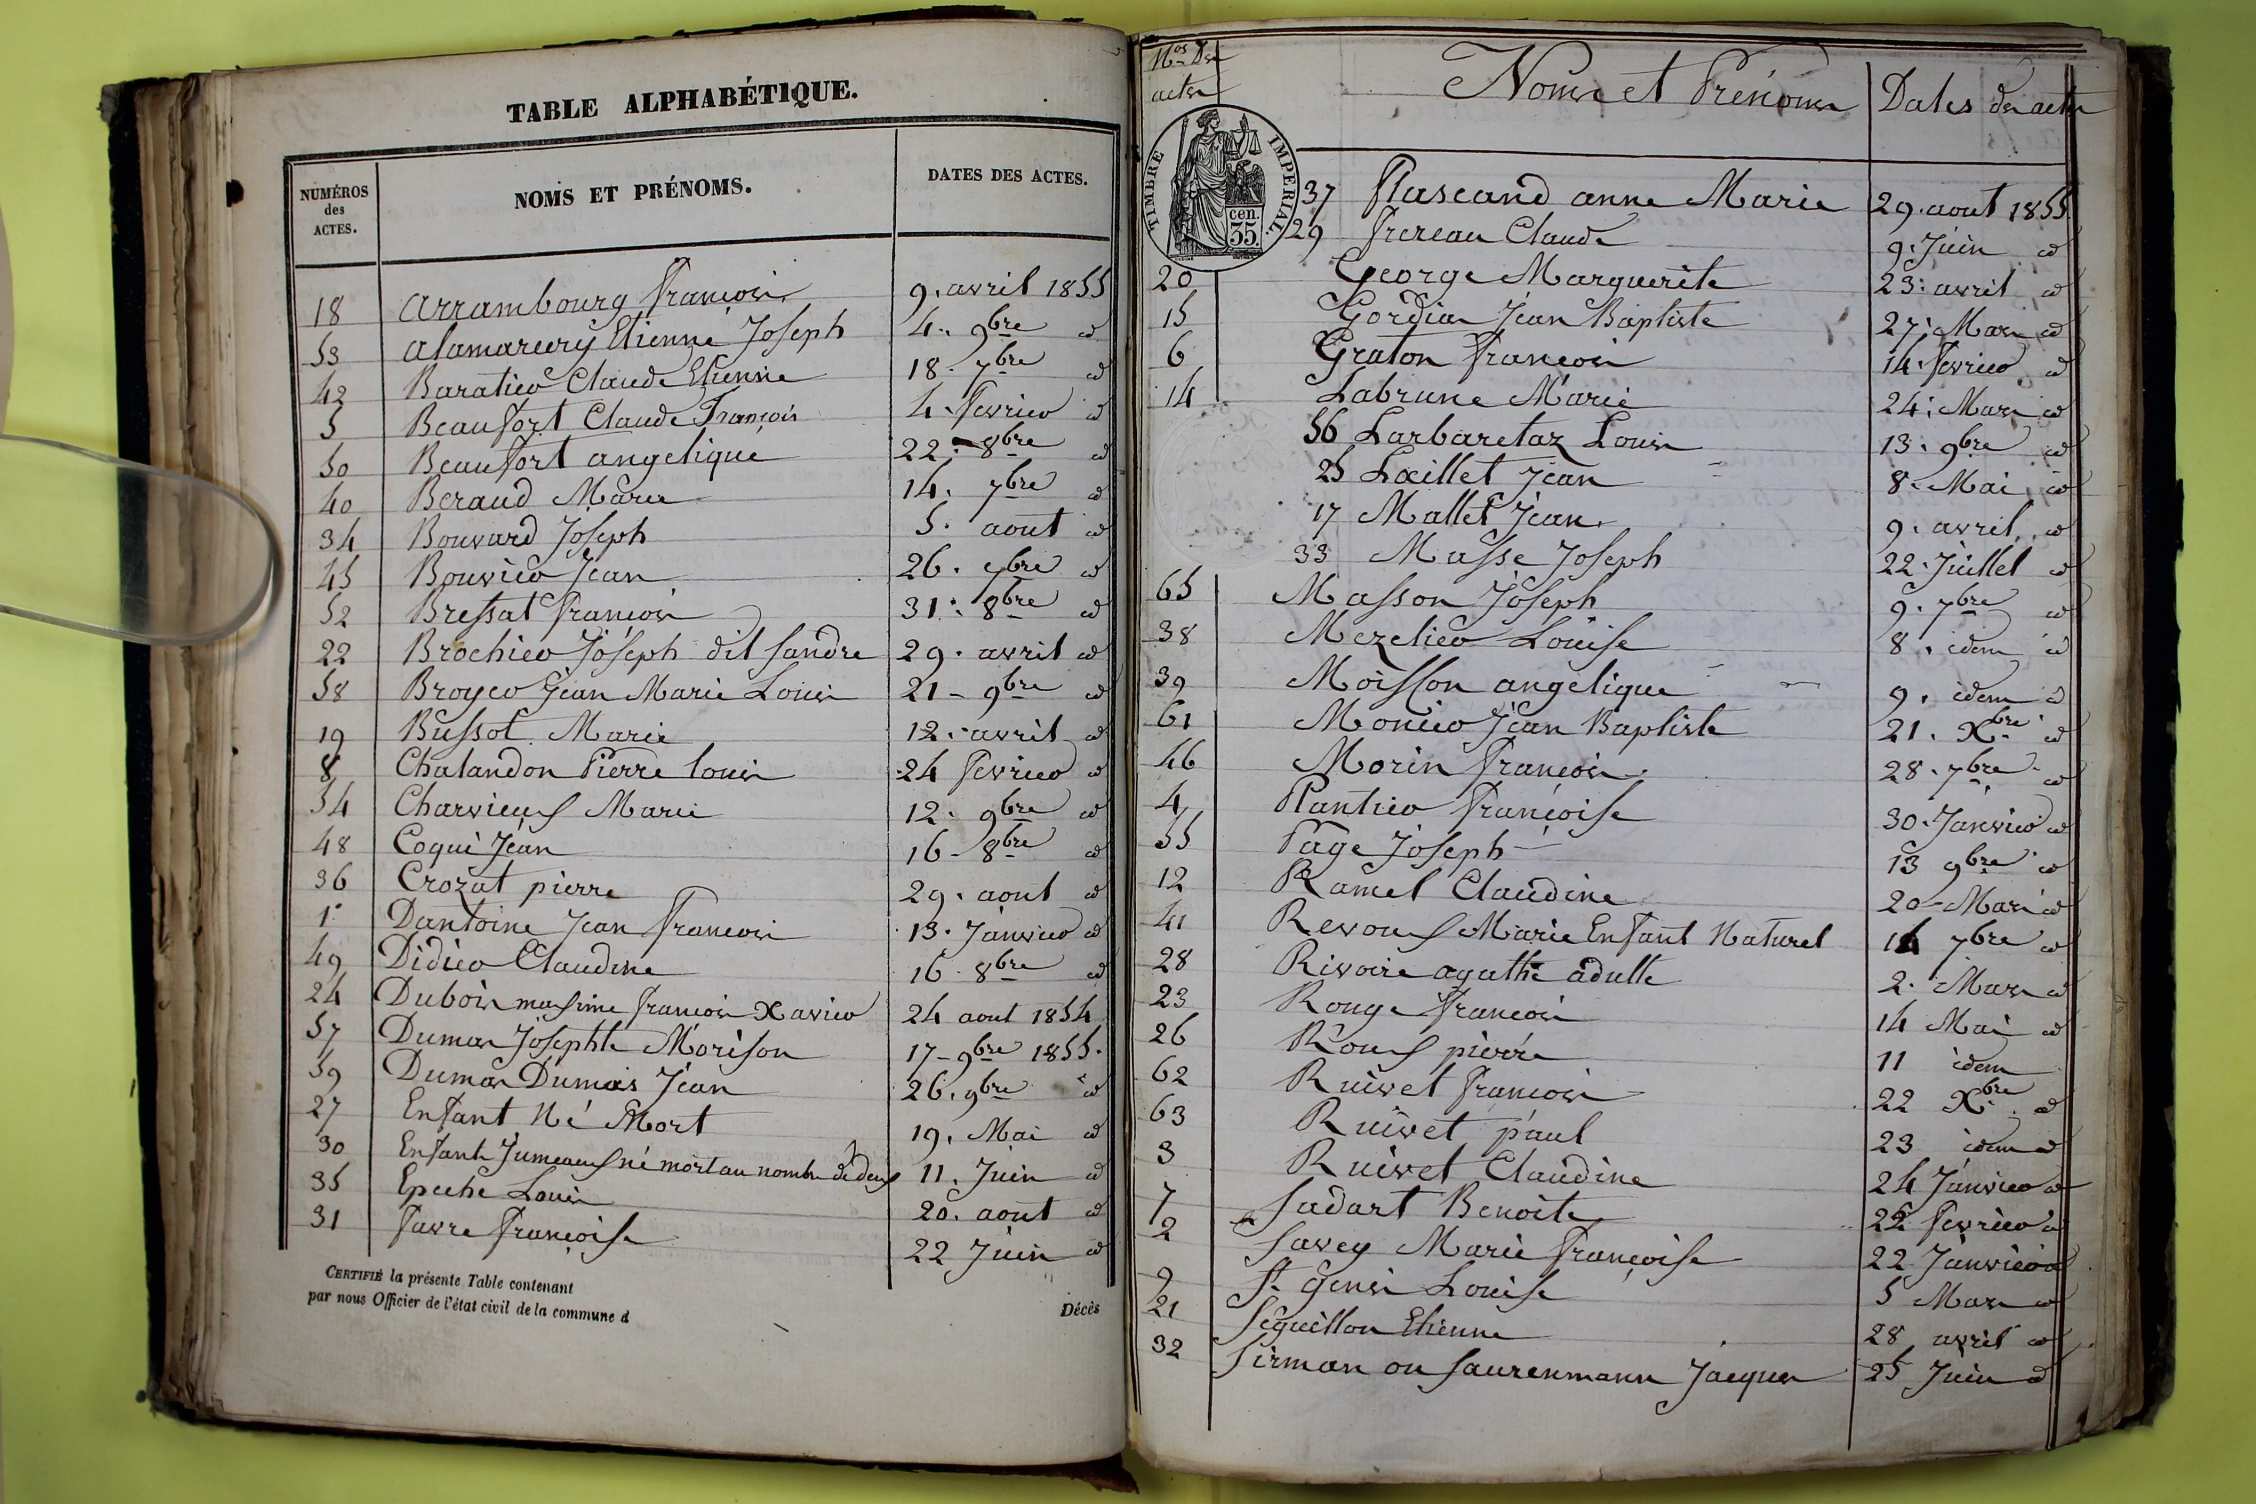 TABLE ALPHABÉTIQUE.
NUMÉROS des ACTES. NOMS ET PRÉNOMS. DATES DES ACTES.
18 Arrambourg François 9. avril 1855
53 Alamarcery Etienne Joseph 4. 9bre id
42 Baratier Claude Etienne 18. 7bre id
5 Beaufort Claude François 4. fevrier id
50 Beaufort angelique 22. 8bre id
40 Beraud Marie 14. 7bre id
34 Bouvard Joseph 5. aout id
45 Bouvier Jean 26. 7bre id
52 Bressat François 31. 8bre id
22 Brochier Joseph dit Sandre 29. avril id
58 Broyer Jean Marie Louis 21 - 9bre id
19 Bussot Marie 12. avril id
8 Chalandon Pierre Louis 24 fevrier id
54 Charvieux Marie 12. 9bre id
48 Coqui Jean 16 - 8bre id
36 Crozat pierre 29. aout id
1 Dantoine Jean François 13. Janvier id
49 Didier Claudine 16. 8bre id
24 Dubois maxime François Xavier 24 aout 1854
57 Dumas Josephte Morison 17 - 9bre 1855.
59 Dumas Dumas Jean 26. 9bre id
27 Enfant Né Mort 19. Mai id
30 Enfants Jumeaux né mort au nombre de deux 11. Juin id
35 Epeche Louis 20. aout id
31 Favre Françoise 22 Juin id
CERTIFIÉ la présente Table contenant
par nous Officier de l'état civil de la commune d
Décès
Nos Des actes Noms et Prénoms Dates des actes
TIMBRE IMPERIAL.
35 cen.
37 Flascand anne Marie 29. aout 1855
29 Frereau Claude 9. Juin id
20 George Marguerite 23. avril id
15 Gordia Jean Baptiste 27. Mars id
6 Graton François 14. fevrier id
14 Labrune Marie 24. Mars id
56 Larbaretaz Louis 13. 9bre id
25 Lœillet Jean 8. Mai id
17 Mallet Jean 9. avril id
33 Masse Joseph 22. Juillet id
65 Masson Joseph 9. 7bre id
38 Mezelier Louise 8. idem id
39 Moisson angelique 9. idem id
61 Monier Jean Baptiste 21. Xbre id
46 Morin François 28. 7bre id
4 Pantier Françoise 30. Janvier id
55 Page Joseph 13 9bre id
12 Ramel Claudine 20 - Mars id
41 Revoux Marie Enfant Naturel 14 7bre id
28 Rivoire agathe adulte 2. Mars id
23 Rouge François 14 Mai id
26 Roux pierre 11 idem
62 Ruivet François 22 Xbre id
63 Ruivet paul 23 idem id
3 Ruivet Claudine 24 Janvier id
7 Sadart Benoite 22 fevrier id
2 Savey Marie Françoise 22 Janvier id
9 St. Genis Louise 5 Mars id
21 Seguillon Etienne 28 avril id
32 Sirman ou Saurenmann Jacques 25 Juin id